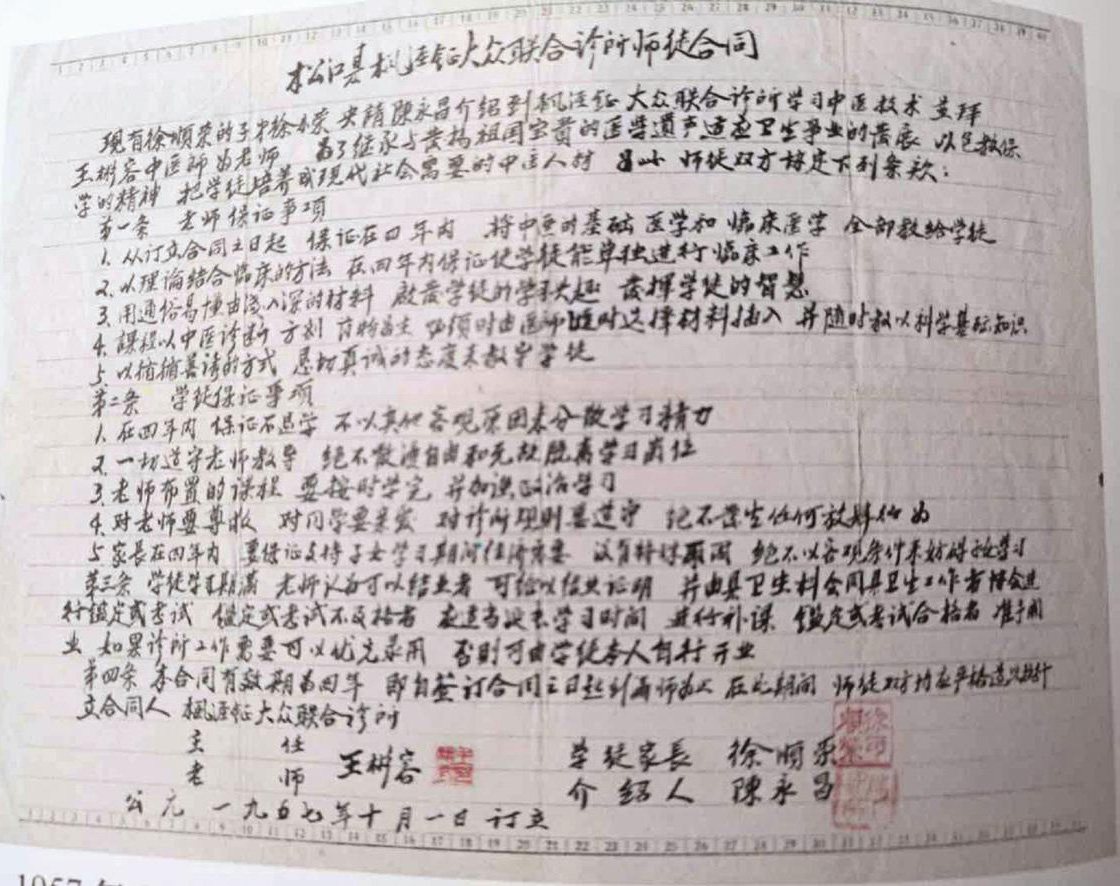 松江县枫泾镇大众联合诊所师徒合同
现有徐顺荣的子 徐 荣 央请陳永昌介绍到枫泾镇大众联合诊所学习中医技术 并拜
王树容中医師为老师 为了继承与发扬祖国宝贵的医学遗产适应卫生事业的发展 以包教保
学的精神 把学徒培养成现代社会需要的中医人材 师徒双方协定下列条款：
第一条 老师保证事项
1. 从订立合同之日起 保证在四年内 将中医的基础医学和临床医学 全部教给学徒
2. 以理论结合临床的方法 在四年内保证使学徒能单独进行临床工作
3. 用通俗易懂由浅入深的材料 啟发学徒的学习兴趣 发挥学徒的智慧
4. 課程以中医诊断 方剂 药物为主 必须时由医师随时选择材料插入 并随时教以科学基础知识
5. 以循循善诱的方式 恳切真诚的态度来教学学徒
第二条 学徒保证事项
1. 在四年内 保证不退学 不以其他客观原因来分散学习精力
2. 一切遵守老师教导 绝不散漫自由和无故脱离学习岗位
3. 老师布置的课程 要按时学完 并加强政治学习
4. 对老师要尊敬 对同学要亲爱 对诊所规则要遵守 绝不发生任何放肆行为
5. 家長在四年内 要保证支持子女学习期间经济需要 没有特殊原因 绝不以客观条件来妨碍学习
第三条 学徒学习期满 老师认为可以结业者 可给以结业证明 并由县卫生科会同县卫生工作者协会进
行鑑定或考试 鑑定或考试不及格者 在适当延长学习时间 进行补课 鑑定或考试合格者 准予开
业 如果诊所工作需要可以优先录用 否则可由学徒本人自行开业
第四条 本合同有效期为四年 即自签订合同之日起到满师为止 在此期间 师徒双方均应严格遵照执行
立合同人 枫泾镇大众联合诊所
主任
老师 王树容
学徒家長 徐顺荣
介绍人 陳永昌
公元一九五七年十月一日订立
1957年